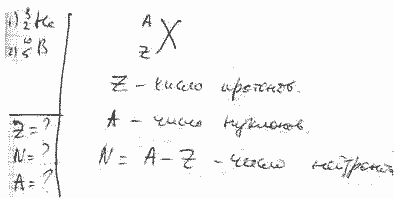 1) ³₂He
2) ¹⁰₅B
Z = ?
N = ?
A = ?
ᴬ_Z X
Z – число протонов.
A – число нуклонов.
N = A – Z – число нейтронов